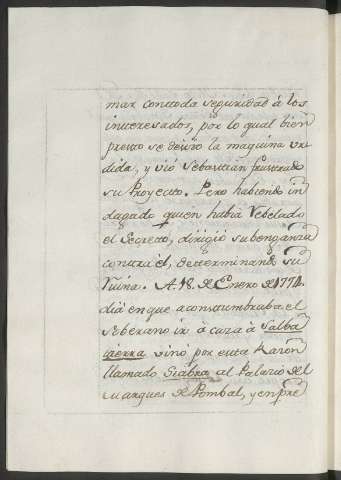 mar contoda seguridad à los
interesados, por lo qual bien
presto se deuro la maquina ur
dida, y vió Sebastian frustrado
su Proyecto. Pero habiendo in
dagado quien habia Rebelado
el Secreto, dirigió su benganza
contra él, determinando su
Ruina. A 18. de Enero de 1774.
dia en que acostumbraba el
Soberano ir à caza à Salba
tierra vino por esta Razon
llamado Siabra al Palacio del
Marques de Pombal, y en pre